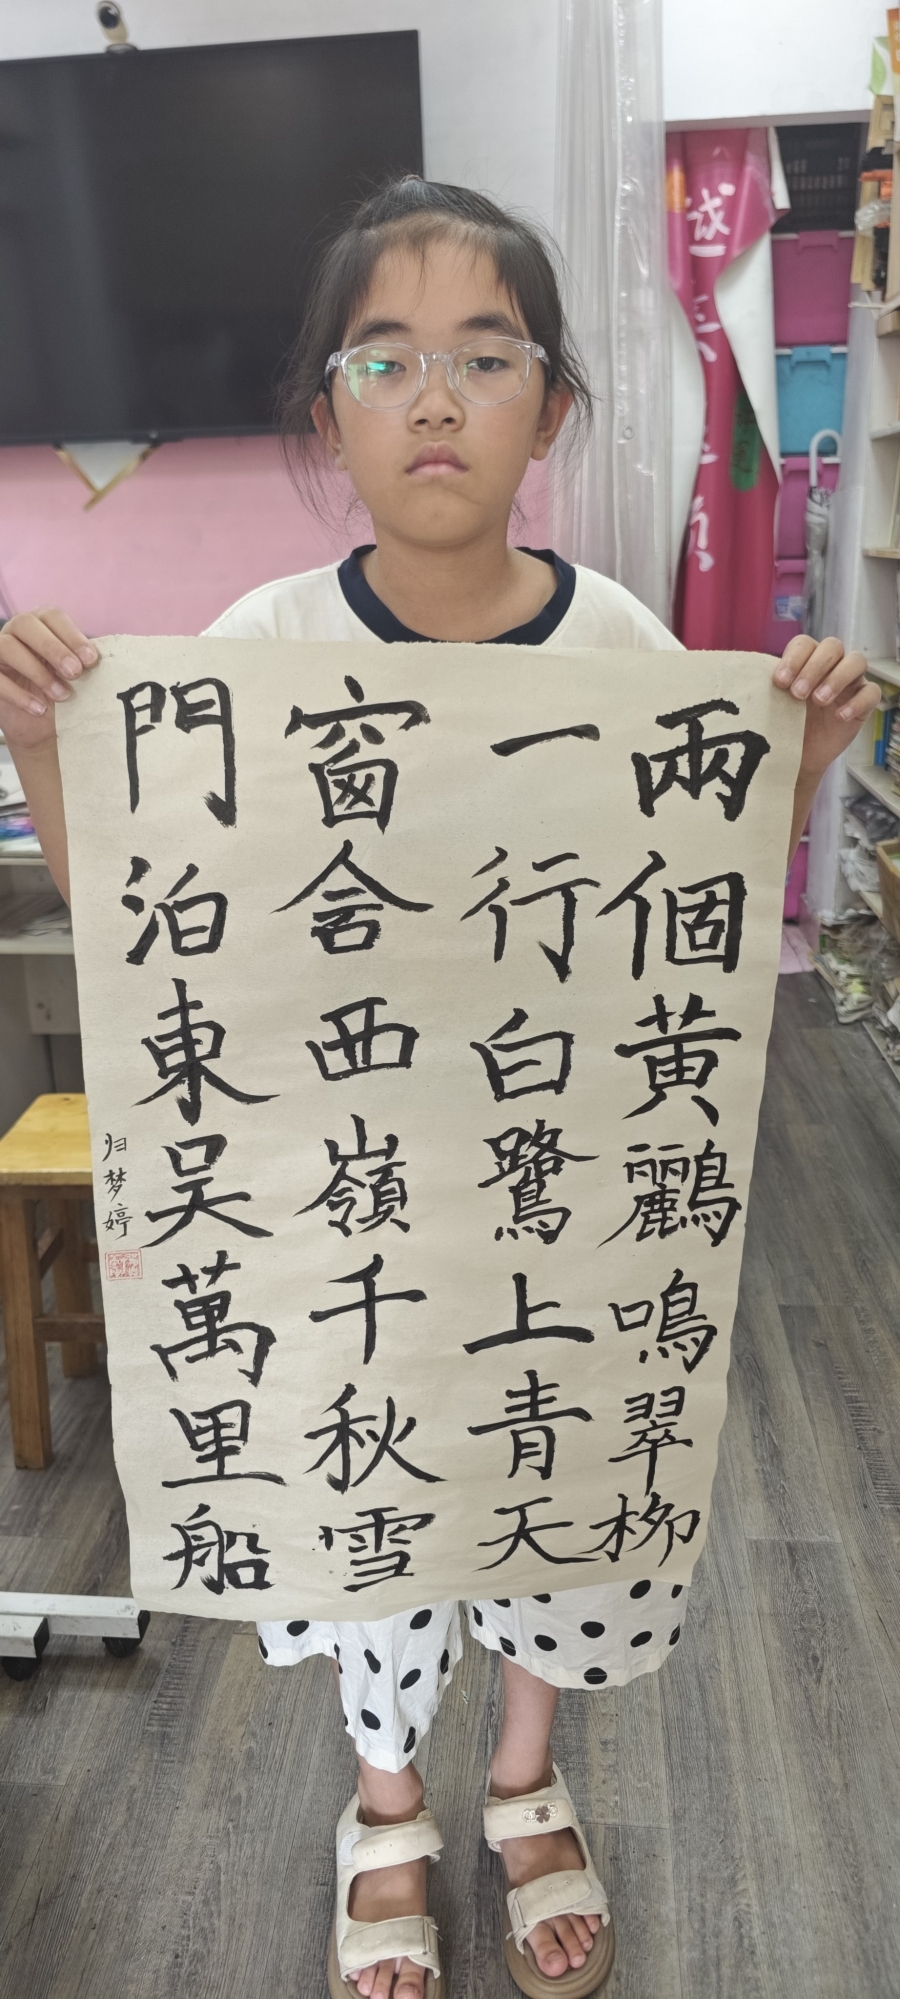 兩個黄鸝鳴翠柳
一行白鷺上青天
窗含西嶺千秋雪
門泊東吴萬里船
归梦婷